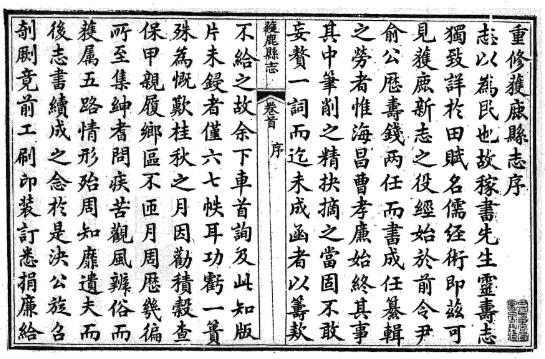 重修獲鹿縣志序
志以為民也故稼書先生靈壽志
獨致詳於田賦名儒經術即茲可
見獲鹿新志之役經始於前令尹
俞公歷壽錢兩任而書成任纂輯
之勞者惟海昌曹孝廉始終其事
其中筆削之精抉摘之當固不敢
妄贅一詞而迄未成函者以籌款
獲鹿縣志
卷首
序
不給之故余下車首詢及此知版
片未鋟者僅六七帙耳功虧一簣
殊為慨歎桂秋之月因勸積穀查
保甲親履鄉區不匝月周歷幾徧
所至集紳耆問疾苦觀風辨俗而
獲屬五路情形殆周知靡遺夫而
後志書續成之念於是決公旋召
剞劂竟前工刷印裝訂悉捐廉給